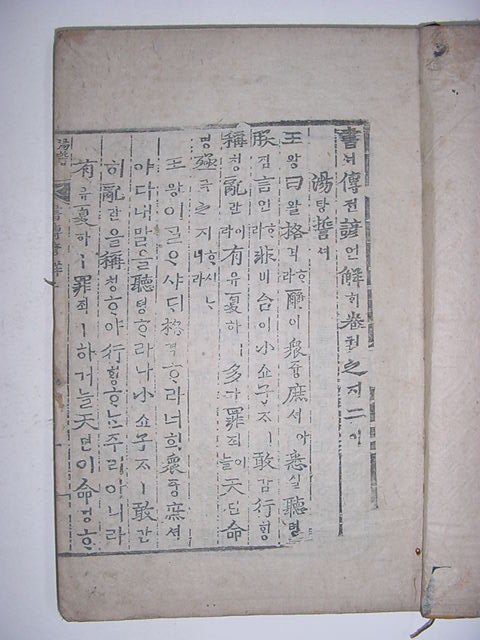 書서傳전諺언解ᄒᆡ卷권之지二이
湯탕誓셔
王왕曰왈格격ᄒᆞ라爾이衆즁庶셔아悉실聽텽
朕짐言언ᄒᆞ라非비台이小쇼子ᄌᆞㅣ敢감行ᄒᆡᆼ
稱칭亂란이라有유夏하ㅣ多다罪죄ㅣ늘天텬命
명殛극之지ᄒᆞ시ᄂᆞ니라
王왕이ᄀᆞᆯᄋᆞ샤ᄃᆡ格격ᄒᆞ라너희衆즁庶셔
야다내말을聽텽ᄒᆞ라나小쇼子ᄌᆞㅣ敢감
히亂란을稱칭ᄒᆞ야行ᄒᆡᆼᄒᆞᄂᆞᆫ주리아니라
有유夏하ㅣ罪죄ㅣ하거늘天텬이命명ᄒᆞ
湯誓